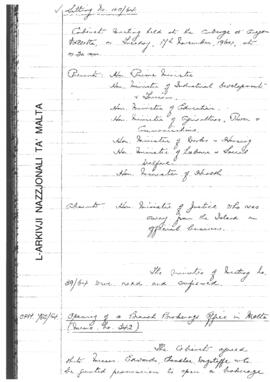 Sitting No. 107/64
Cabinet Meeting held at the Auberge d'Aragon
Valletta, on Tuesday, 17th November, 1964, at
Present: Hon. Prime Minister
Hon. Minister of Industrial Development
& Tourism
Hon. Minister of Education
Hon. Minister of Agriculture, Power &
Communications
Hon. Minister of Works & Housing
Hon. Minister of Labour & Social
Welfare
Hon. Minister of Health
L-ARKIVJI NAZZJONALI TA' MALTA
Absent: Hon. Minister of Justice who was
away from the Island on
official business.
The minutes of Meeting No.
were read and confirmed.
Opening of a Branch Brokerage Office in Malta
(Memo. No. 342)
The Cabinet agreed
that Messrs. Edwards Chandler
be granted permission to open a brokerage